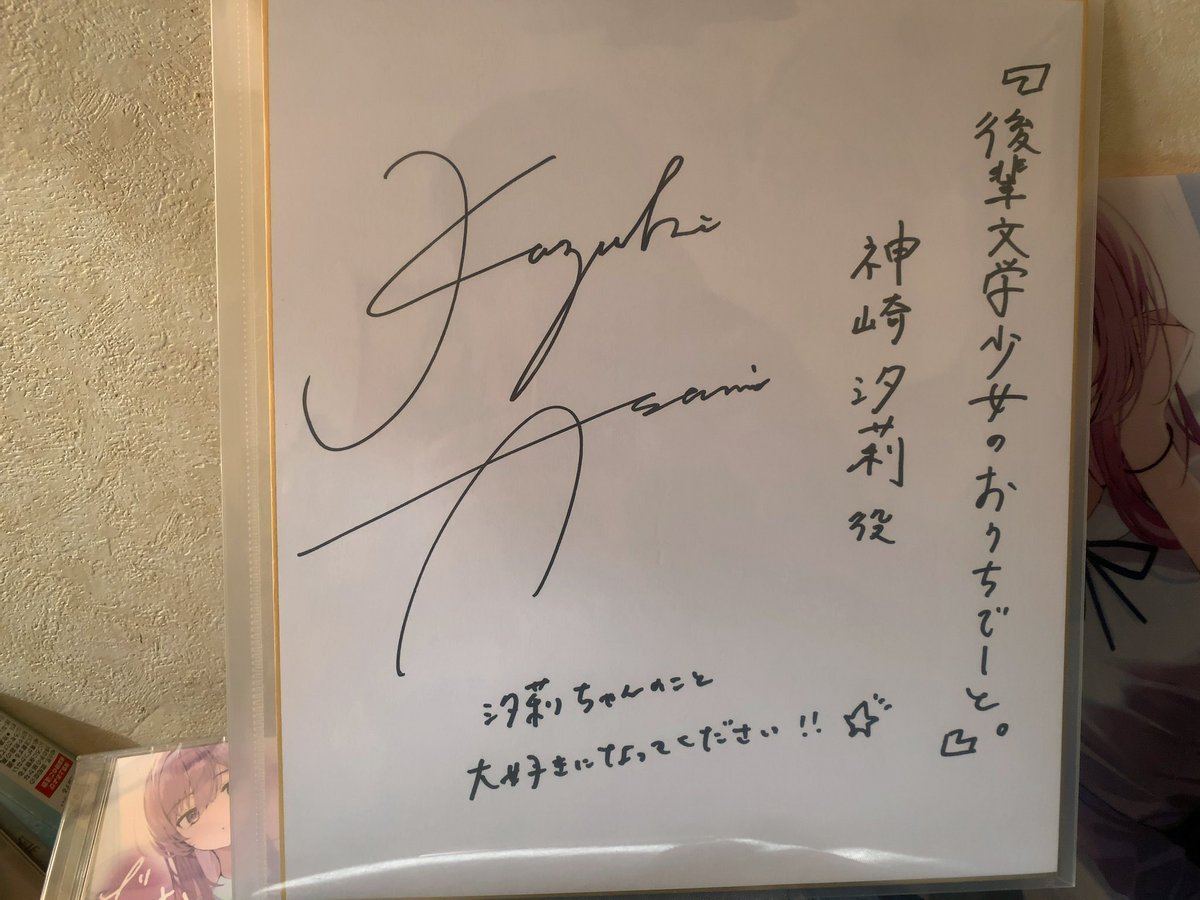 『後輩文学少女のおうちでーと。』
神崎汐莉役
Kazuki
Asami
汐莉ちゃんのこと
大好きになってください!!☆